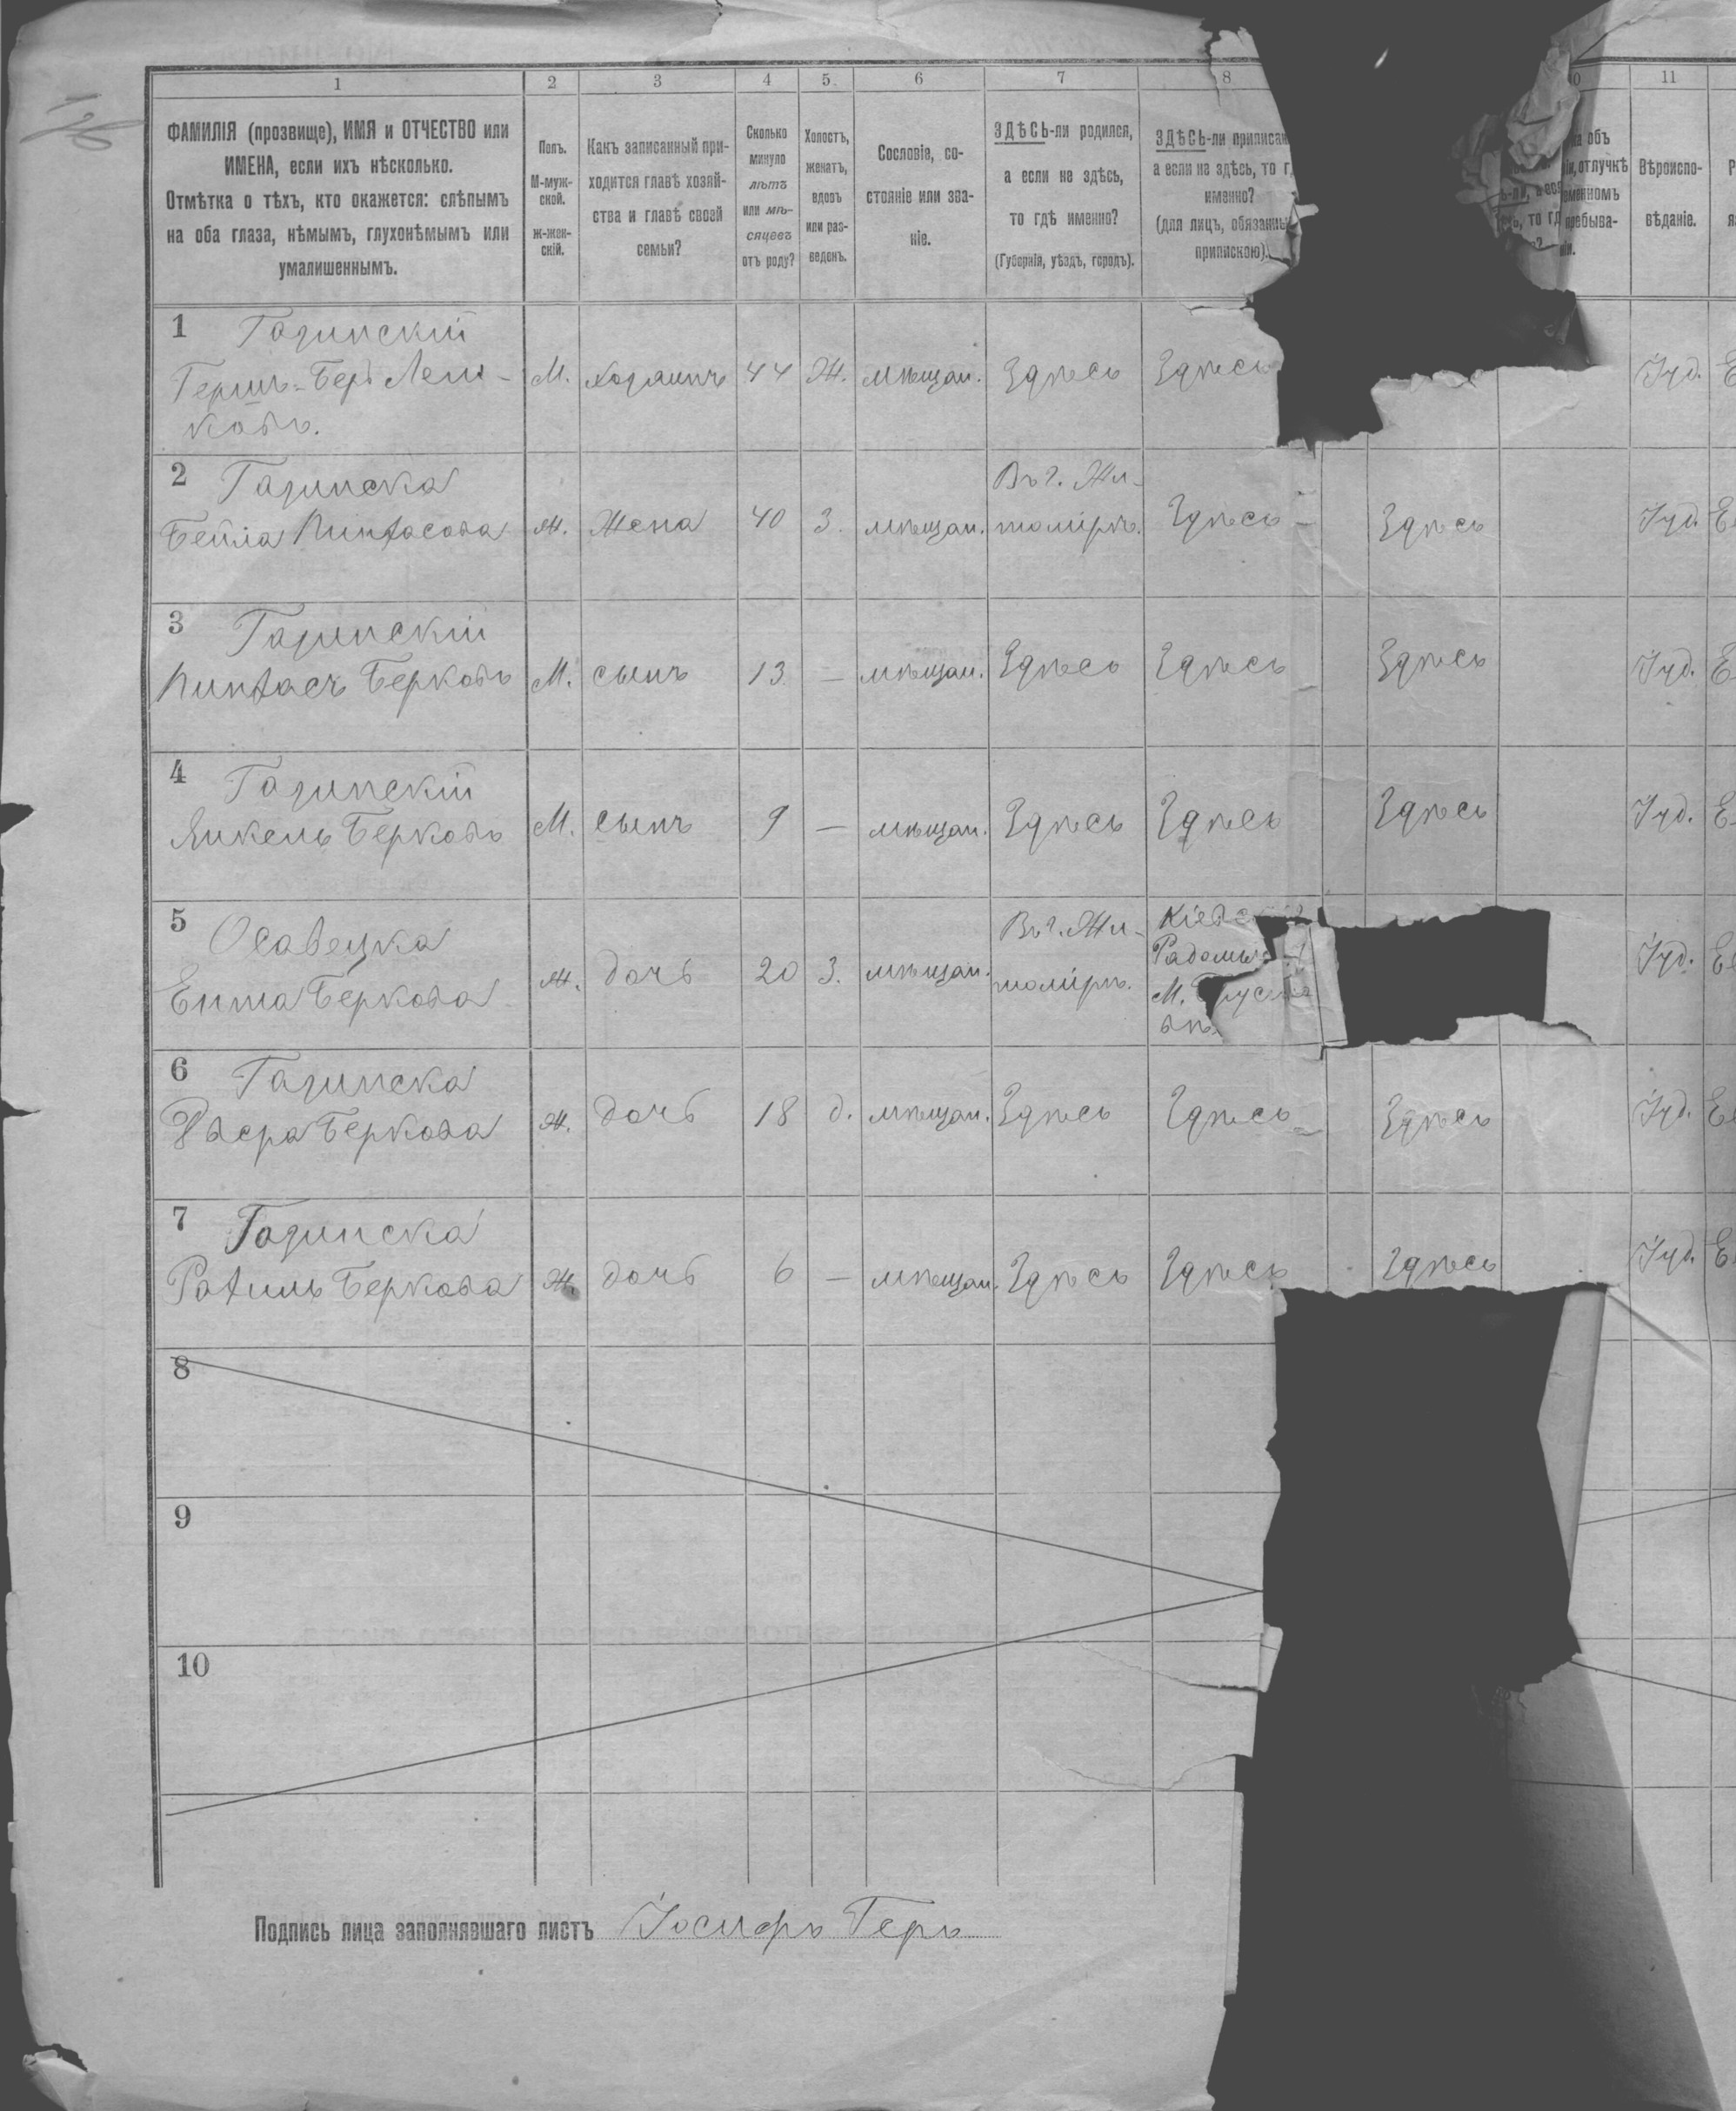 1 2 3 4 5 6 7 8 11
ФАМИЛІЯ (прозвище), ИМЯ и ОТЧЕСТВО или
ИМЕНА, если ихъ нѣсколько.
Отмѣтка о тѣхъ, кто окажется: слѣпымъ
на оба глаза, нѣмымъ, глухонѣмымъ или
умалишеннымъ.
Полъ.
М-муж-
ской.
ж-жен-
скій.
Какъ записанный при-
ходится главѣ хозяй-
ства и главѣ своей
семьи?
Сколько
минуло
лѣтъ
или мѣ-
сяцевъ
отъ роду?
Холостъ,
женатъ,
вдовъ
или раз-
веденъ.
Сословіе, со-
стояніе или зва-
ніе.
ЗДѢСЬ-ли родился,
а если не здѣсь,
то гдѣ именно?
(Губернія, уѣздъ, городъ).
ЗДѢСЬ-ли приписан
а если не здѣсь, то г
именно?
(для лицъ, обязанны
припискою).
объ
отлучкѣ
еменномъ
пребыва-
ніи.
Вѣроиспо-
вѣданіе.
1 Газинскій
Гершъ-Беръ Лей-
ковъ.
М. хозяинъ 44 Ж. мѣщан. Здѣсь Здѣсь Іуд.
2 Газинска
Бейла Пинхасова ж. Жена 40 З. мѣщан. Въ г. Жи-
томірѣ. Здѣсь Здѣсь Іуд.
3 Газинскій
Пинхасъ Берковъ М. сынъ 13 — мѣщан. Здѣсь Здѣсь Здѣсь Іуд.
4 Газинскій
Янкель Берковъ М. сынъ 9 — мѣщан. Здѣсь Здѣсь Здѣсь Іуд.
5 Осавецка
Ента Беркова ж. дочь 20 З. мѣщан. Въ г. Жи-
томірѣ. Кіев
Радомы
М. Брусил
Іуд.
6 Газинска
Двера... Беркова ж. дочь 18 д. мѣщан. Здѣсь Здѣсь Здѣсь Іуд.
7 Газинска
Рахиль Беркова Ж. дочь 6 — мѣщан. Здѣсь Здѣсь Здѣсь Іуд.
8
9
10
Подпись лица заполнявшаго листъ Іосифъ Геръ